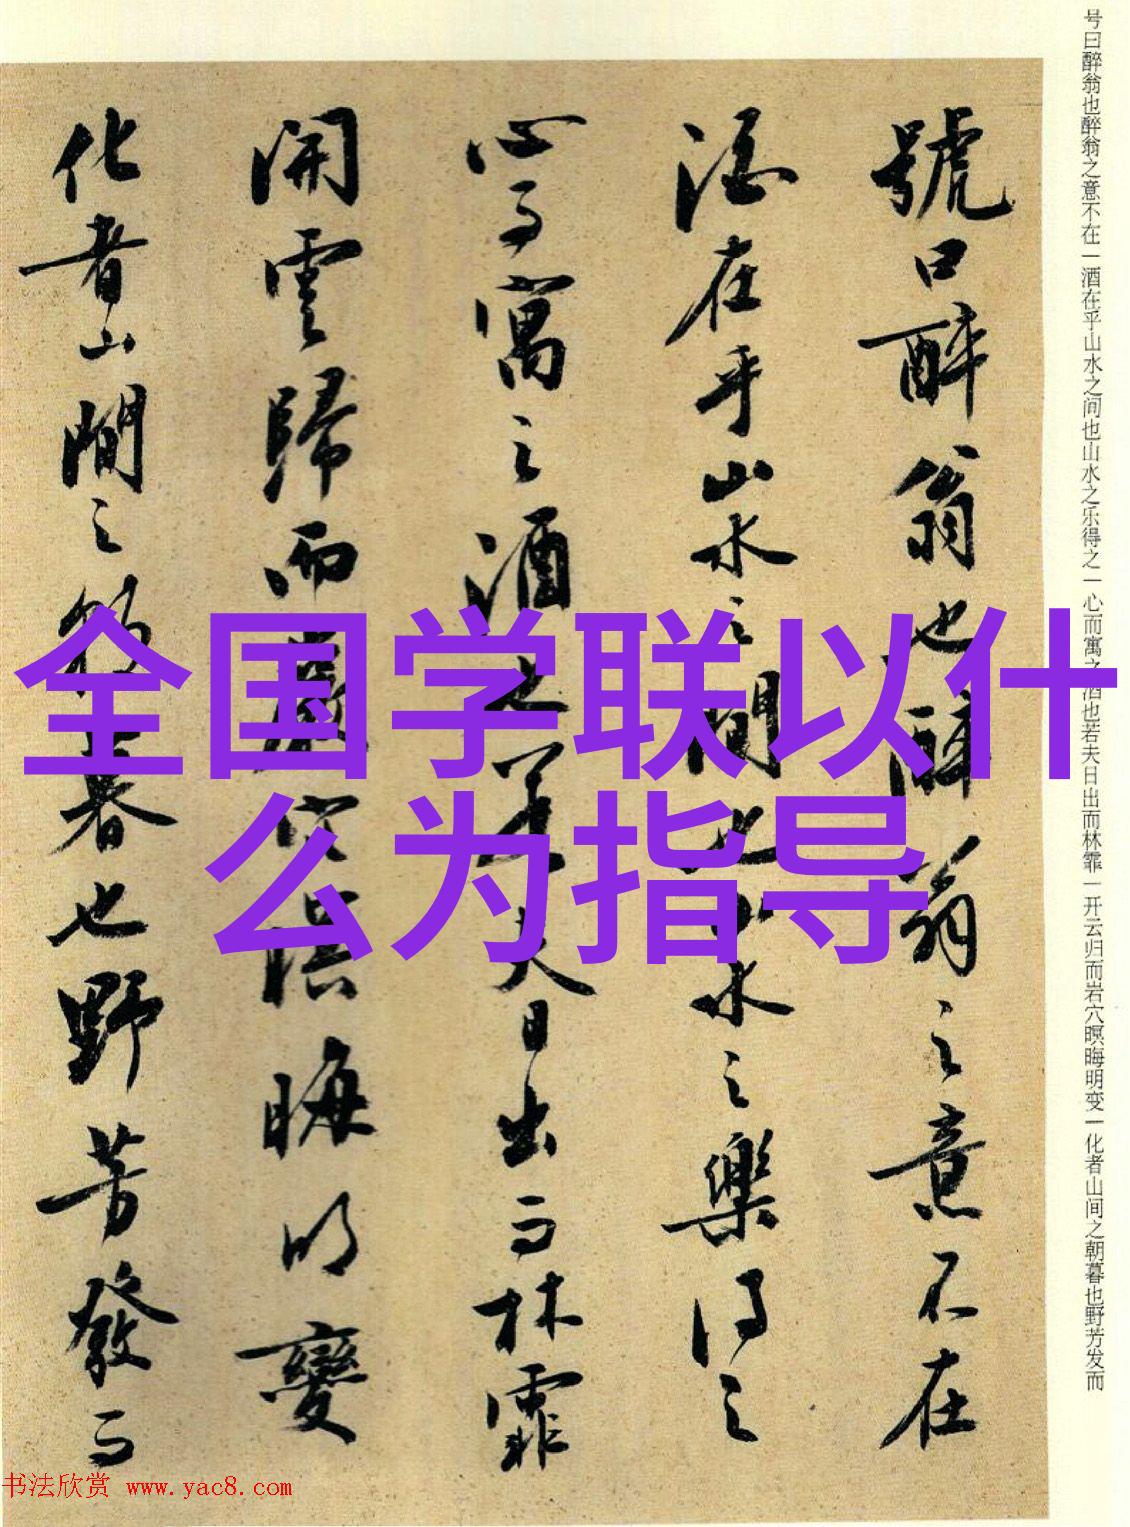 号曰醉翁也醉翁之意不在一酒在乎山水之间也山水之乐得之一心而寓之酒也若夫日出而林霏一开云归而岩穴暝晦明变一化者山间之朝暮也野芳发而
號曰醉翁也醉翁之意不在
酒在乎山水之間也山水之樂得之
心而寓之酒也若夫日出而林霏
開雲歸而巖穴暝晦明變
化者山間之朝暮也野芳發而
全国学联以什
么为指导
书法欣赏 www.yac8.com